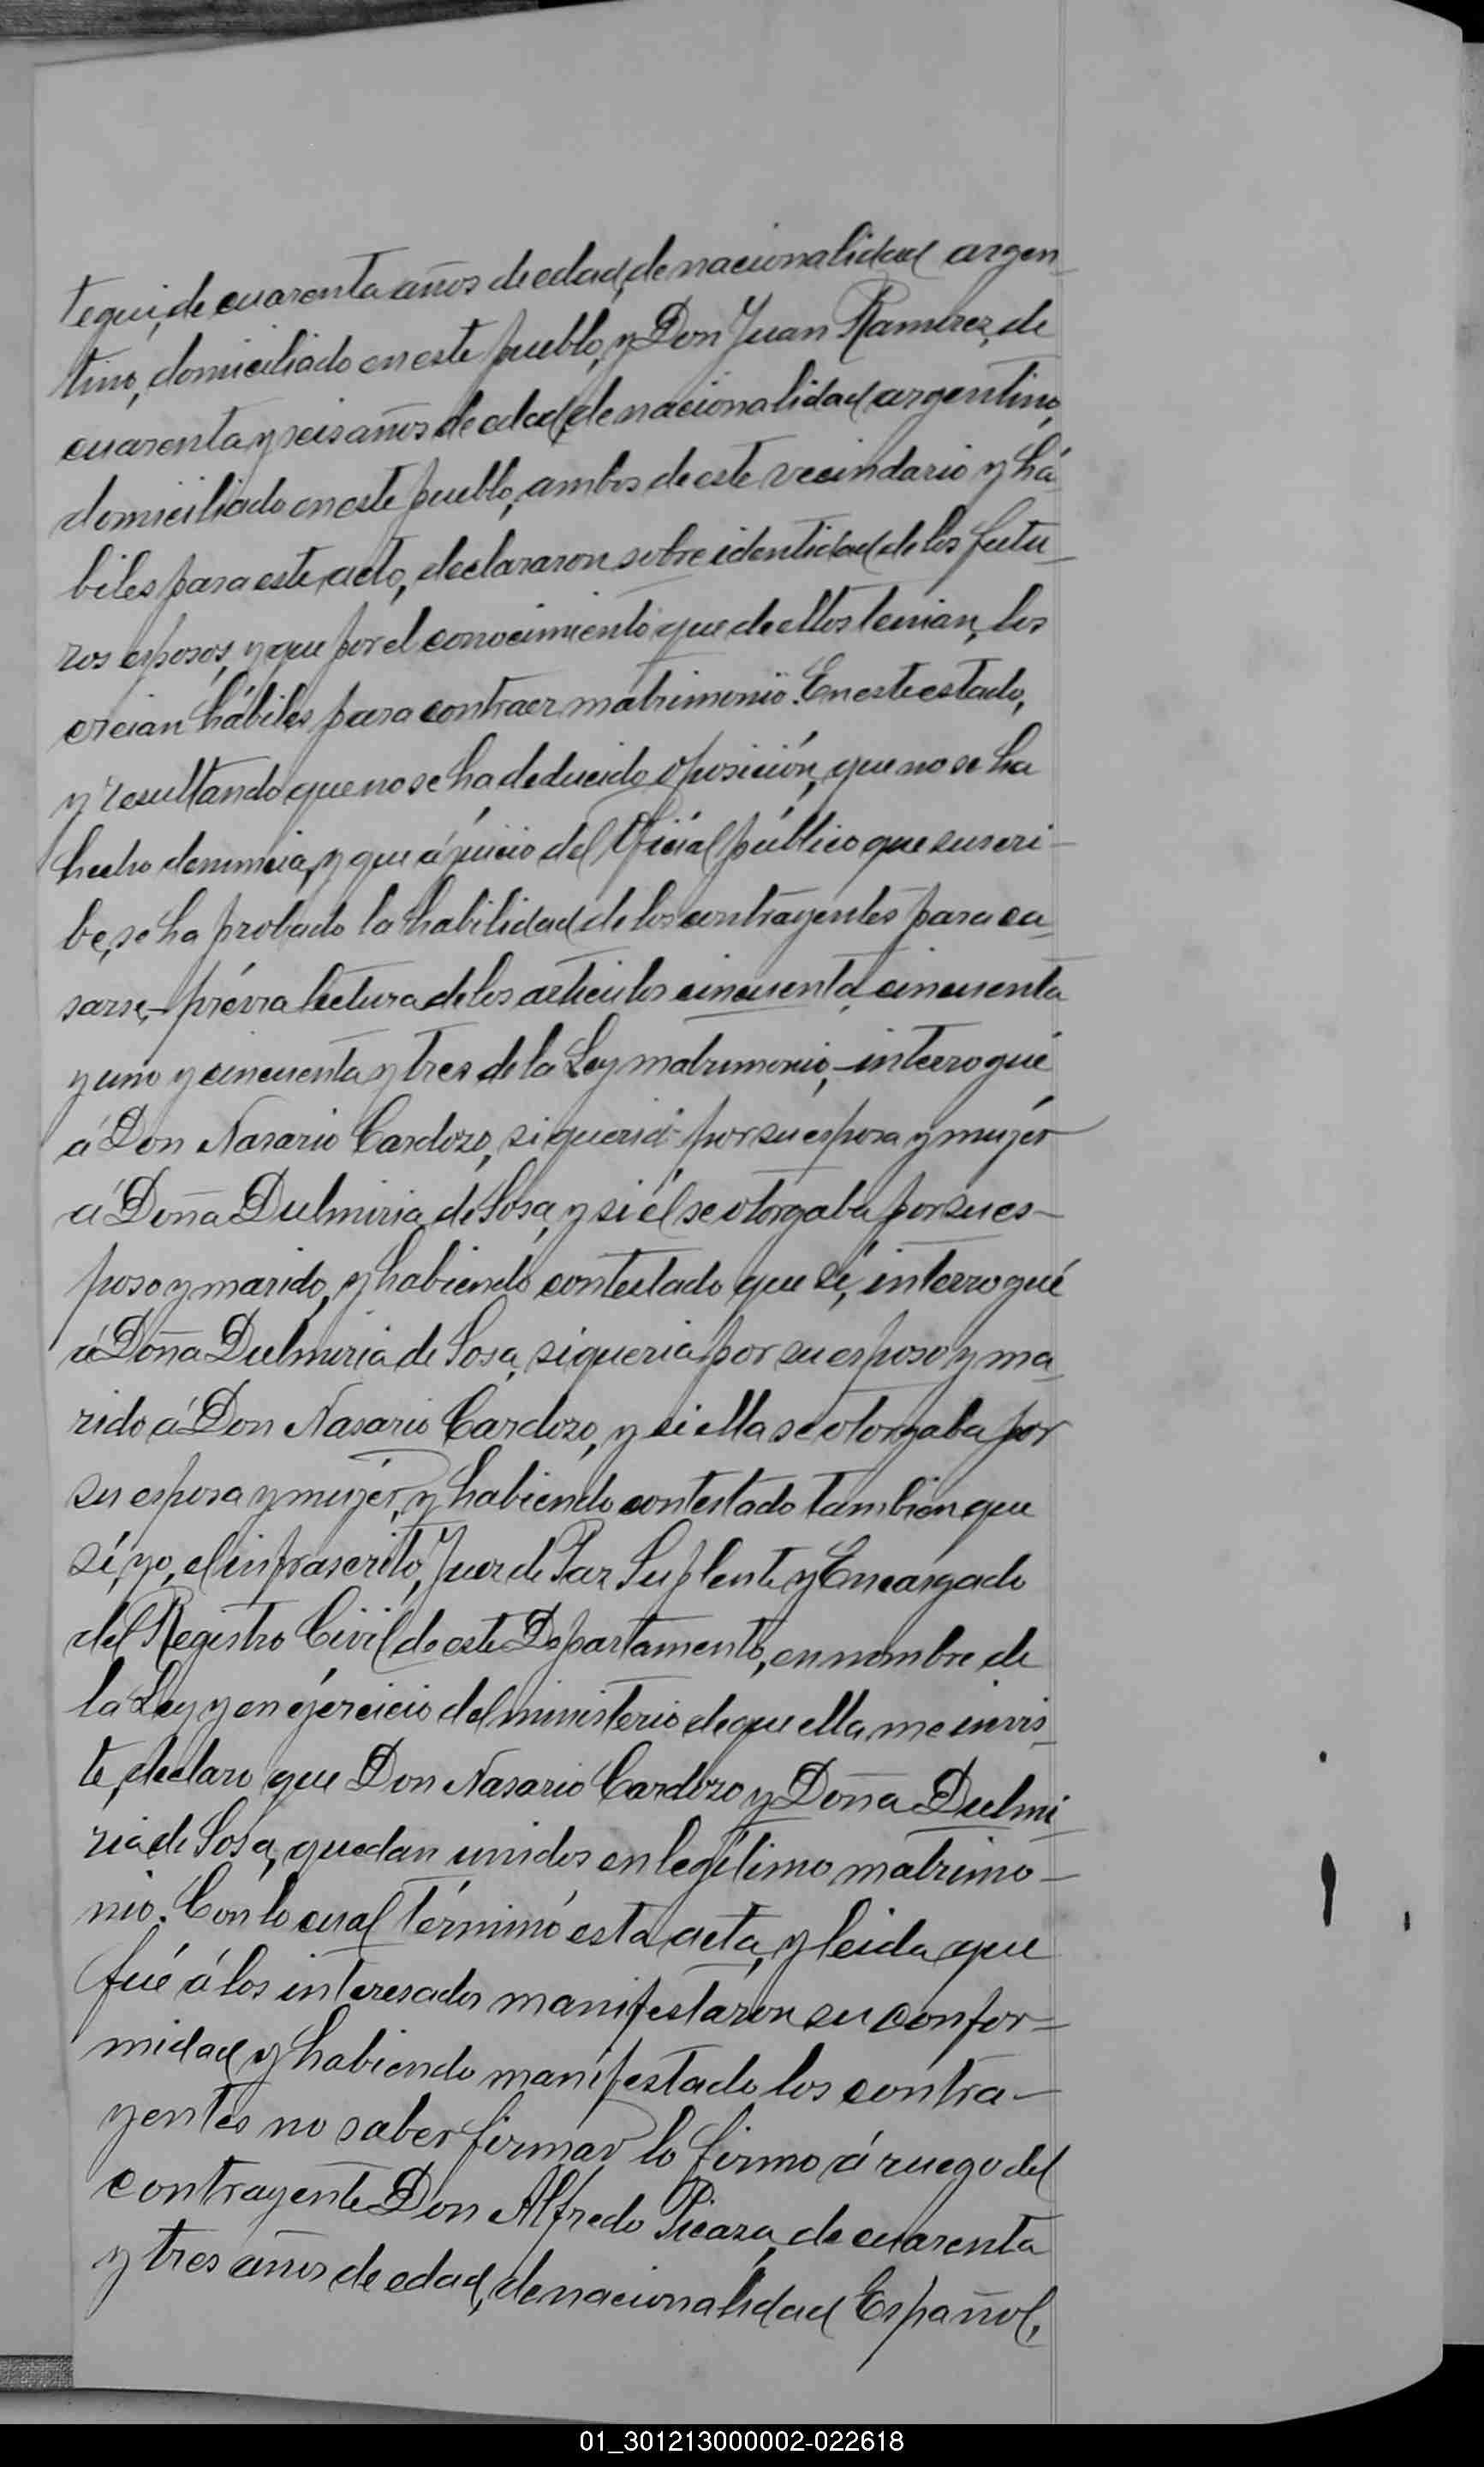 tegui, de cuarenta años de edad, de nacionalidad argen-
tino, domiciliado en este pueblo, y Don Juan Ramirez, de
cuarenta y seis años de edad, de nacionalidad argentino,
domiciliado en este pueblo, ambos de este vecindario y há-
biles para este acto, declararon sobre identidad de los futu-
ros esposos, y que por el conocimiento que de ellos tenian, los
creian hábiles para contraer matrimonio. En este estado,
y resultando que no se ha deducido oposición, que no se ha
hecho denuncia, y que á juicio del Oficial público que suscri-
be, se ha probado la habilidad de los contrayentes para ca-
sarse,- prévia lectura de los articulos cincuenta, cincuenta
y uno y cincuenta y tres de la Ley matrimonio,- interrogué
á Don Nasario Cardozo, si queria por su esposa y mujér
á Doña Dulmiria de Sosa, y si él se otorgaba por su es-
poso y marido, y habiendo contestado que sí, interrogué
á Doña Dulmiria de Sosa, si queria por su esposo y ma-
rido á Don Nasario Cardozo, y si ella se otorgaba por
su esposa y mujér, y habiendo contestado tambien que
sí, yo, el infrascrito, Juez de Paz Suplente y Encargado
del Registro Civil de este Departamento, en nombre de
la Ley y en ejercicio del ministerio de que ella me invis-
te, declaro que Don Nasario Cardozo y Doña Dulmi-
ria de Sosa, quedan unidos en legítimo matrimo-
nio. Con lo cual términó esta acta, y leida que
fué á los interesados manifestaron su confor-
midad y habiendo manifestado los contra-
yentes no saber firmar lo firmo á ruego del
contrayente Don Alfredo Picaza, de cuarenta
y tres años de edad, de nacionalidad Español,
01_301213000002-022618